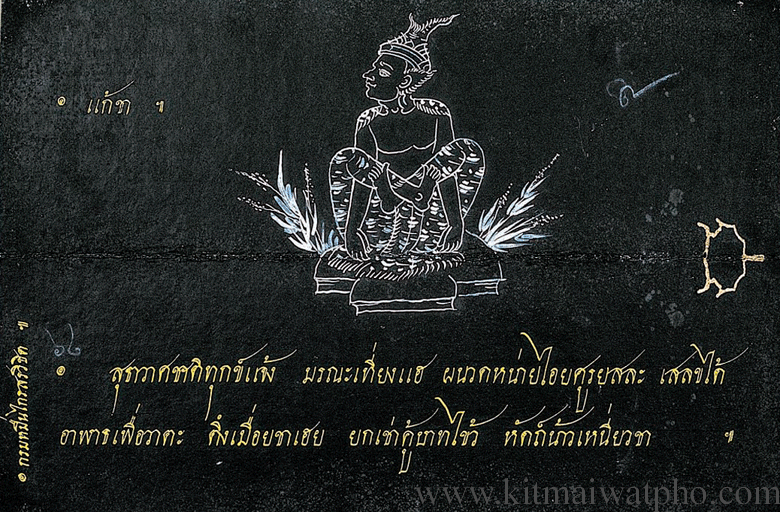 ๏ แก้ชา ๚
๏ ชาติทุกข์แจ้ง มรณะเที่ยงแฮ ผนวดหน่ายไอยศูรยสละ เสลขได้
อาพาธเพื่อวาตะ ตึงเมื่อยชาเฮย ยกเข่าคู้บาทไขว้ หัดถ์น้าวเหนี่ยวขา ๚
๏ กรมหมื่นไกรสรวิชิต ๚
www.kitmaiwatpho.com